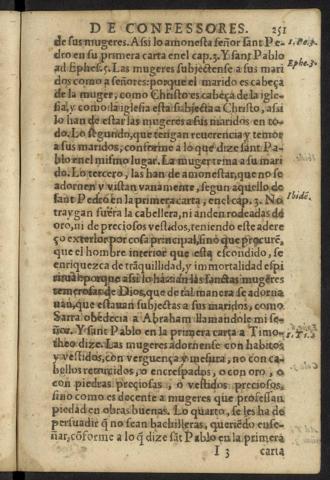 DE CONFESSORES. 251
de sus mugeres. Assi lo amonesta señor sant Pe- 1. Pe. 3.
dro en su primera carta en el cap. 3. Y sant Pablo
ad Ephes. 5. Las mugeres subjectense a sus mari Ephe. 3.
dos como a señores: porque el marido es cabeça
de la muger, como Christo es cabeça de la igle-
sia, y como la iglesia esta subjecta a Christo, assi
lo han de estar las mugeres a sus maridos en to-
do. Lo segundo, que tengan reuerencia y temor
a sus maridos, conforme a lo que dize sant Pa-
blo en el mismo lugar. La muger tema a su mari
do. Lo tercero, las han de amonestar, que no se
adornen y vistan vanamente, segun aquello de
sant Pedro en la primera carta, en el cap. 3. No Ibidē.
traygan fuera la cabellera, ni anden rodeadas de
oro, ni de preciosos vestidos, teniendo este adere
ço exterior por cosa principal, sino que procurē,
que el hombre interior que esta escondido, se
enriquezca de trāquillidad, y immortalidad espi
ritual: porque assi lo hazian las sanctas mugeres
temerosas de Dios, que de tal manera se adorna
uan, que estauan subjectas a sus maridos, como
Sarra obedecia a Abraham llamandole mi se-
ñor. Y sant Pablo en la primera carta a Timo-
theo dize. Las mugeres adornense con habitos 1. Ti. 2.
y vestidos, con verguença y mesura, no con ca-
bellos retorcidos, o encrespados, o con oro, o
con piedras preciosas, o vestidos preciosos,
sino como es decente a mugeres que professan
piedad en obras buenas. Lo quarto, se les ha de
persuadir q̄ no sean bachilleras, queriēdo ense-
ñar, cōforme a lo q̄ dize sāt Pablo en la primera
I 3 carta